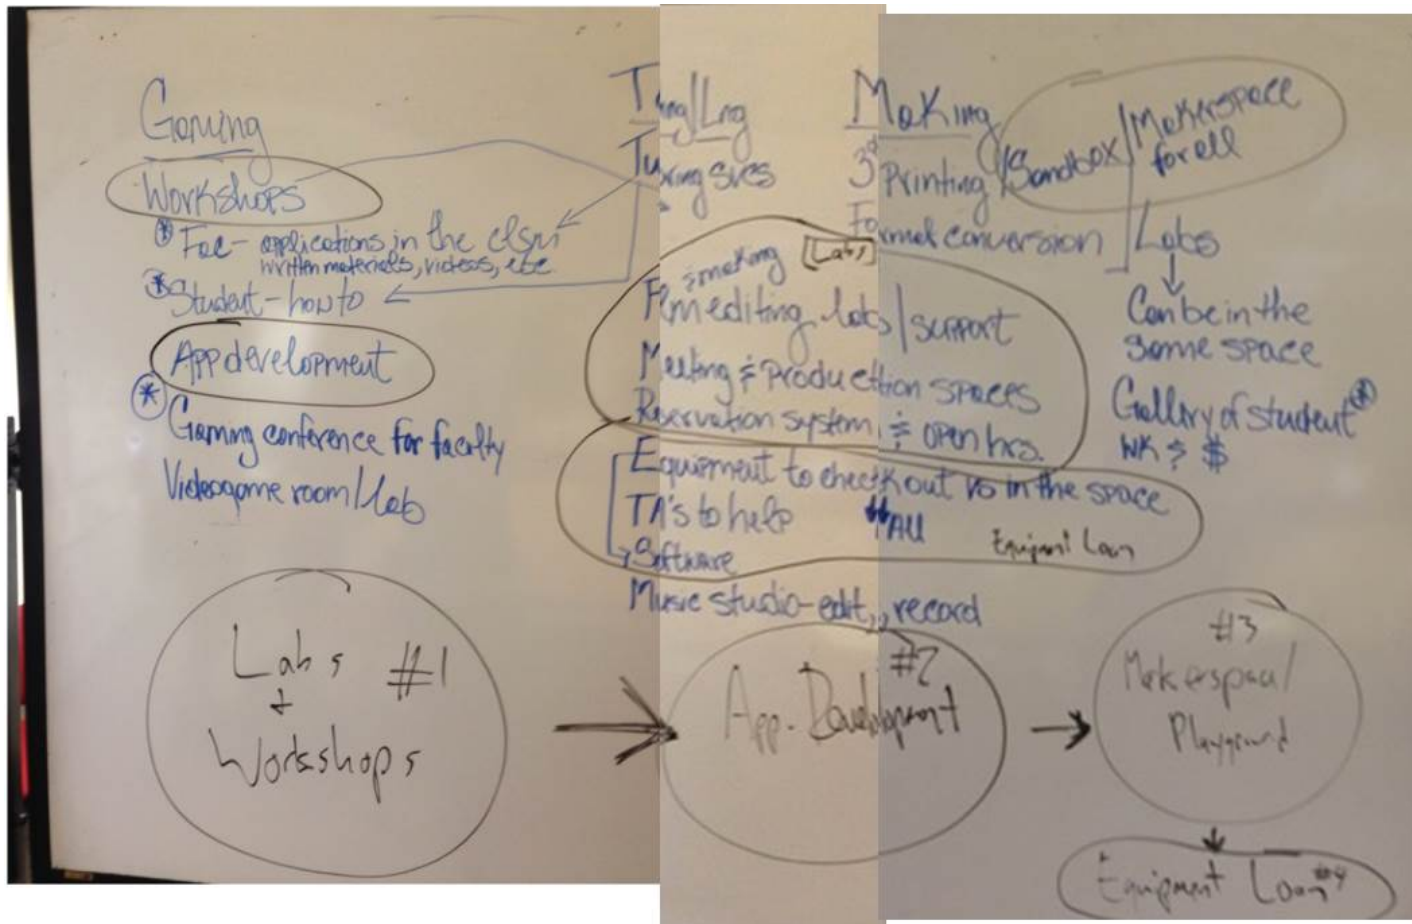 Gaming
Workshops
* Fac - applications in the clsrm
written materials, videos, etc.
* Student - how to
App development
* Gaming conference for faculty
Videogame room/lab
Tching/Lrng
Tutoring svcs
& making [Labs]
Film editing labs/support
Meeting & production spaces
Reservation system & open hrs.
Equipment to check out vs in the space
TA's to help
** All
Equipment Loan
Software
Music studio - edit, record
Making
3D Printing/Sandbox/Makerspace
for all
Format conversion
Labs
Can be in the
same space
Gallery of student *
wk & $
Labs #1
+
Workshops
#2
App. Development
#3
Makerspace/
Playground
Equipment Loan #4